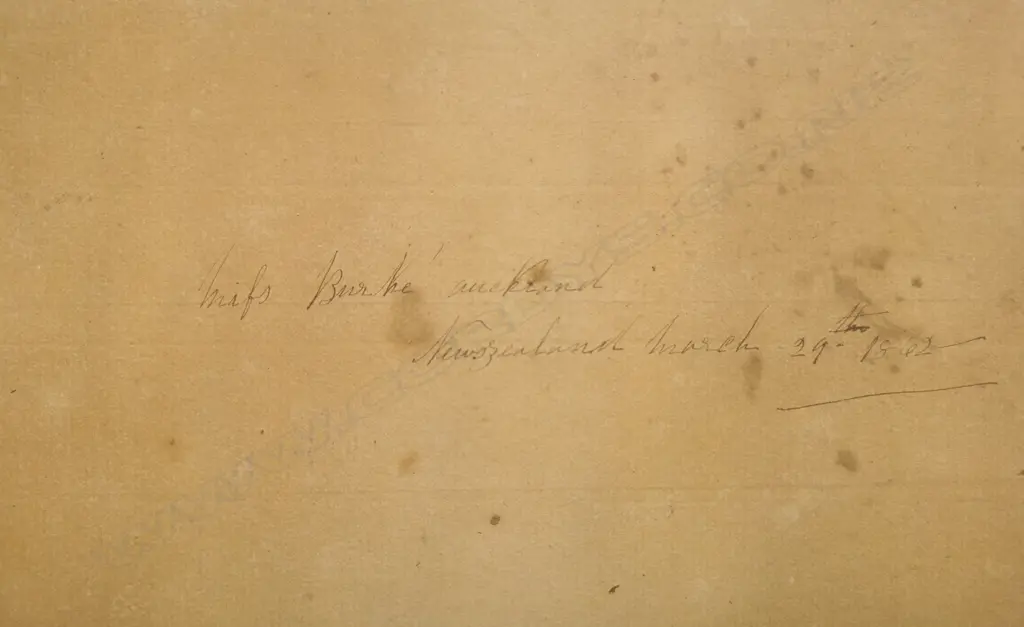 Miſs Burke' auckland
Newszealand March 29th 1862